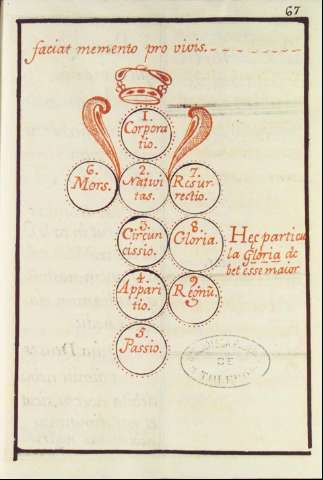 67
faciat memento pro vivis.
1.
Corpora
tio.
6.
Mors.
2.
Nativi
tas.
7.
Resur
rectio.
3.
Circun
cissio.
8.
Gloria.
Hec particu
la Gloria de
bet esse maior
4.
Appari
tio.
9
Regnũ.
5.
Passio.
DE